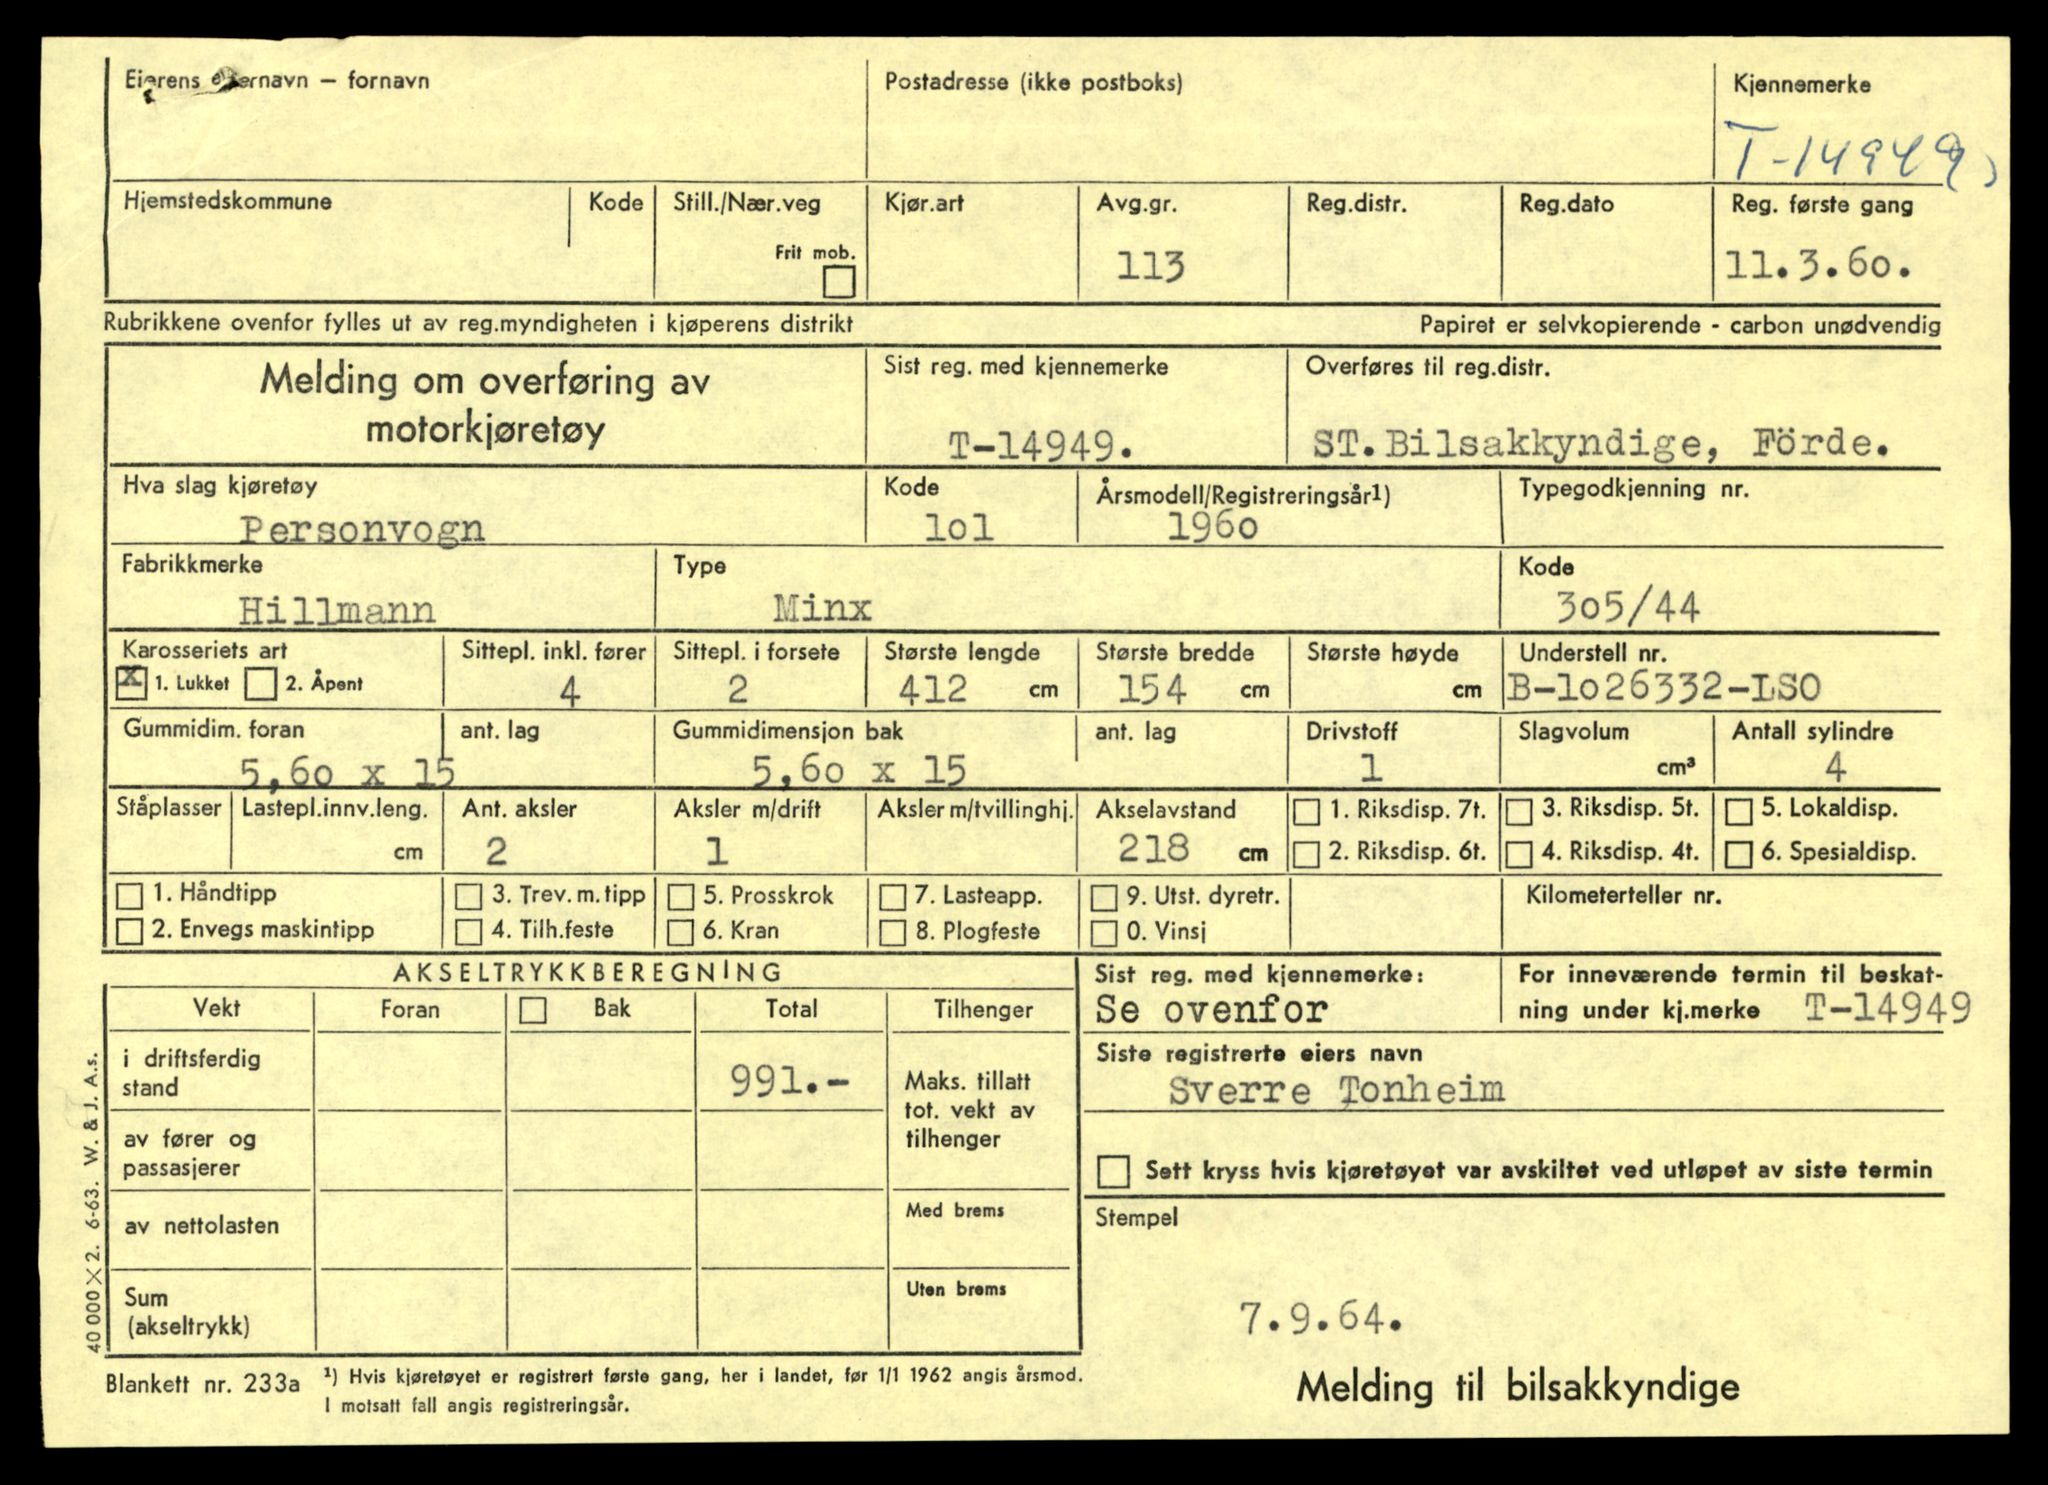 Eierens etternavn – fornavn Postadresse (ikke postboks) Kjennemerke
T-14949
Hjemstedskommune Kode Still./Nær.veg Kjør.art Avg.gr. Reg.distr. Reg.dato Reg. første gang
Frit mob. 113 11.3.60.
Rubrikkene ovenfor fylles ut av reg.myndigheten i kjøperens distrikt Papiret er selvkopierende - carbon unødvendig
Melding om overføring av Sist reg. med kjennemerke Overføres til reg.distr.
motorkjøretøy T-14949. ST.Bilsakkyndige, Förde.
Hva slag kjøretøy Kode Årsmodell/Registreringsår1) Typegodkjenning nr.
Personvogn 1o1 196o
Fabrikkmerke Type Kode
Hillmann Minx 3o5/44
Karosseriets art Sittepl. inkl. fører Sittepl. i forsete Største lengde Største bredde Største høyde Understell nr.
X 1. Lukket 2. Åpent 4 2 412 cm 154 cm cm B-1o26332-LSO
Gummidim. foran ant. lag Gummidimensjon bak ant. lag Drivstoff Slagvolum Antall sylindre
5,6o x 15 5,6o x 15 1 cm³ 4
Ståplasser Lastepl.innv.leng. Ant. aksler Aksler m/drift Aksler m/tvillinghj. Akselavstand 1. Riksdisp. 7t. 3. Riksdisp. 5t. 5. Lokaldisp.
cm 2 1 218 cm 2. Riksdisp. 6t. 4. Riksdisp. 4t. 6. Spesialdisp.
1. Håndtipp 3. Trev. m. tipp 5. Prosskrok 7. Lasteapp. 9. Utst. dyretr. Kilometerteller nr.
2. Envegs maskintipp 4. Tilh.feste 6. Kran 8. Plogfeste 0. Vinsj
AKSELTRYKKBEREGNING Sist reg. med kjennemerke: For inneværende termin til beskat-
Vekt Foran Bak Total Tilhenger Se ovenfor ning under kj.merke T-14949
i driftsferdig stand 991.- Maks. tillatt tot. vekt av tilhenger
Siste registrerte eiers navn
Sverre Tonheim
av fører og passasjerer
Sett kryss hvis kjøretøyet var avskiltet ved utløpet av siste termin
av nettolasten Med brems Stempel
Sum (akseltrykk) Uten brems
7.9.64.
40 000 X 2. 6-63. W. & J. A.s.
Blankett nr. 233a ¹) Hvis kjøretøyet er registrert første gang, her i landet, før 1/1 1962 angis årsmod.
I motsatt fall angis registreringsår.
Melding til bilsakkyndige